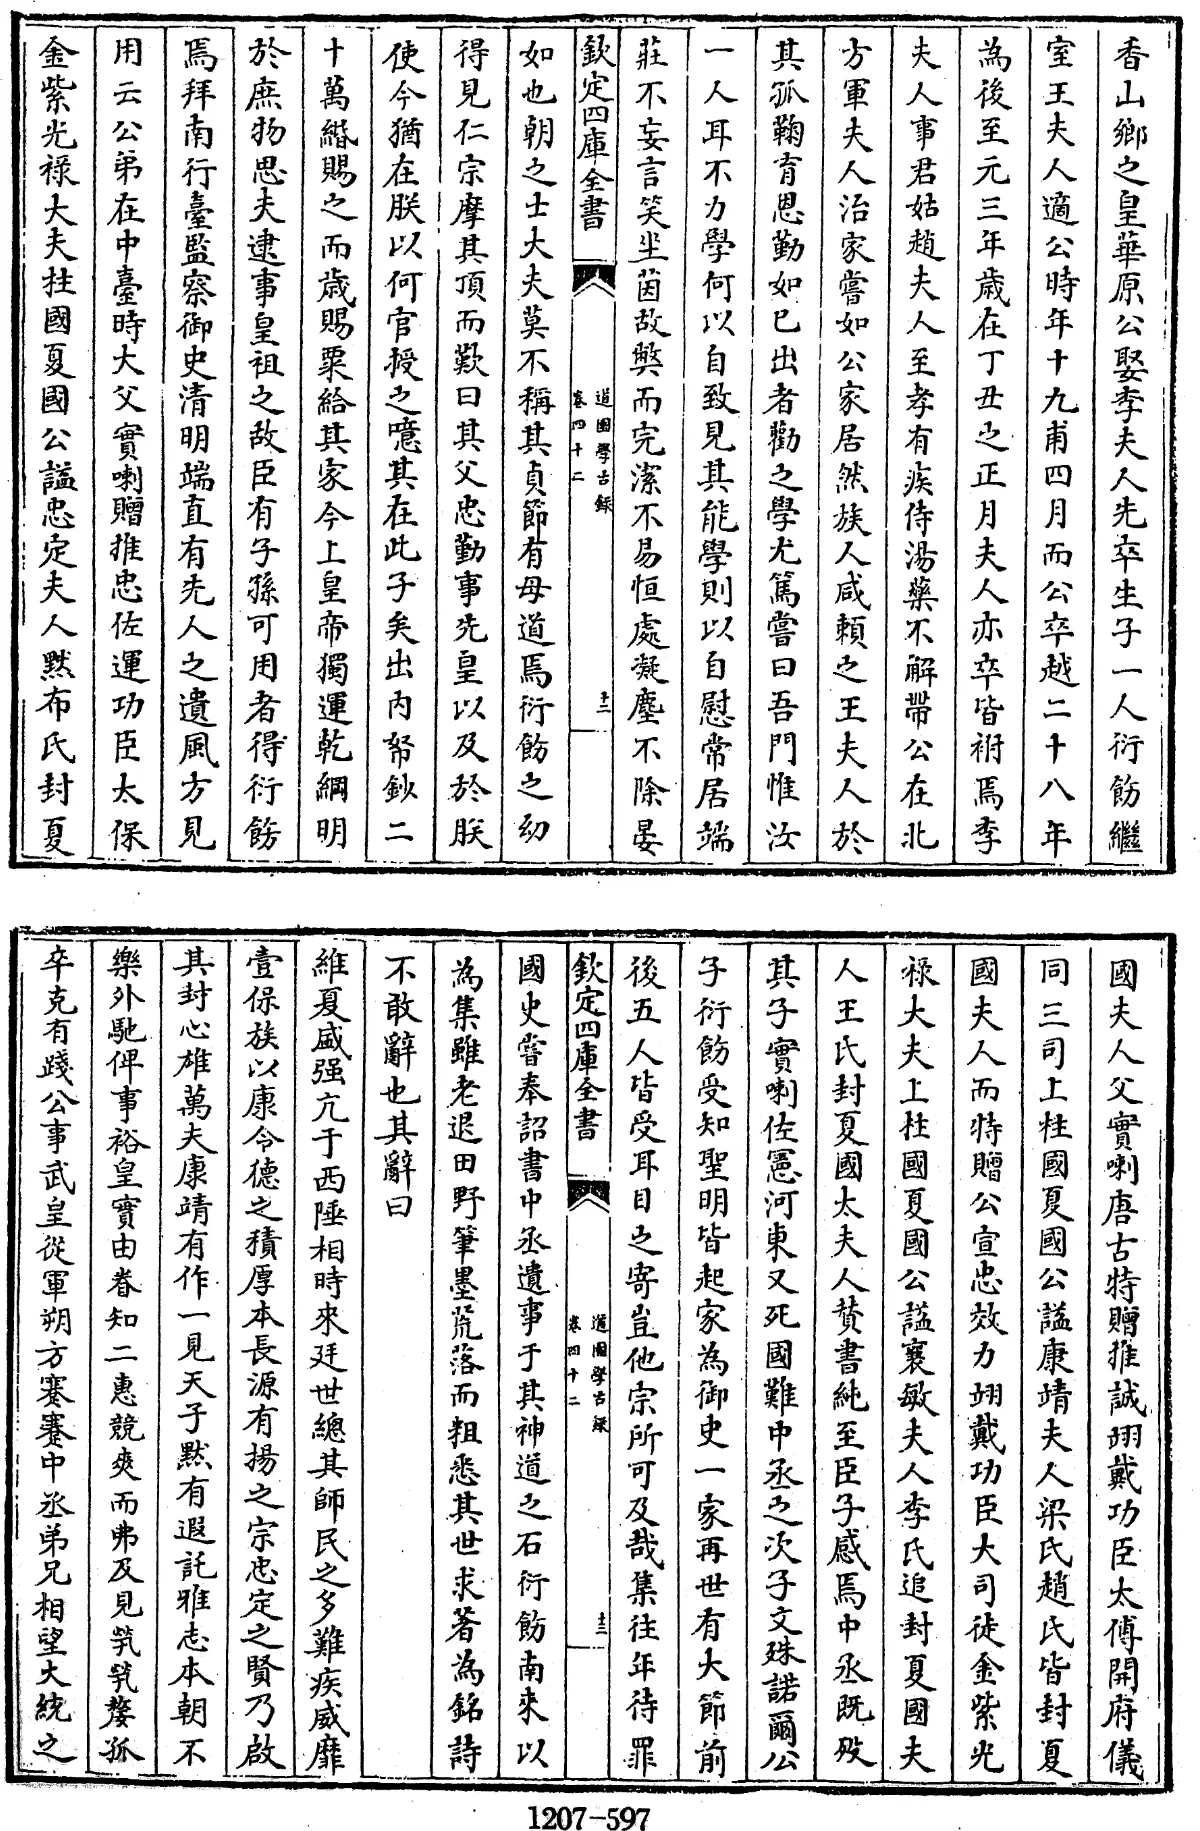 香山鄉之皇華原公娶李夫人先卒生子一人衍飭繼
室王夫人適公時年十九甫四月而公卒越二十八年
為後至元三年歲在丁丑之正月夫人亦卒皆祔焉李
夫人事君姑趙夫人至孝有疾侍湯藥不解帶公在北
方軍夫人治家嘗如公家居然族人咸賴之王夫人於
其孤鞠育恩勤如已出者勸之學尤篤嘗曰吾門惟汝
一人耳不力學何以自致見其能學則以自慰常居端
莊不妄言笑坐茵故獘而完潔不易恒處凝塵不除晏
欽定四庫全書
道園學古錄
卷四十二
十二
如也朝之士大夫莫不稱其貞節有母道焉衍飭之幼
得見仁宗摩其頂而歎曰其父忠勤事先皇以及於朕
使今猶在朕以何官授之噫其在此子矣出内帑鈔二
十萬緡賜之而歲賜粟給其家今上皇帝獨運乾綱明
於庶物思夫逮事皇祖之故臣有子孫可用者得衍飭
焉拜南行臺監察御史清明端直有先人之遺風方見
用云公弟在中臺時大父實喇贈推忠佐運功臣太保
金紫光祿大夫柱國夏國公諡忠定夫人默布氏封夏
國夫人父實喇唐古特贈推誠翊戴功臣太傅開府儀
同三司上柱國夏國公諡康靖夫人梁氏趙氏皆封夏
國夫人而特贈公宣忠效力翊戴功臣大司徒金紫光
祿大夫上柱國夏國公諡襄敏夫人李氏追封夏國夫
人王氏封夏國太夫人贊書純至臣子感焉中丞既歿
其子實喇佐憲河東又死國難中丞之次子文殊諾爾公
子衍飭受知聖明皆起家為御史一家再世有大節前
後五人皆受耳目之寄豈他宗所可及哉集往年待罪
欽定四庫全書
道園學古錄
卷四十二
十三
國史嘗奉詔書中丞遺事于其神道之石衍飭南來以
為集雖老退田野筆墨荒落而粗悉其世求著為銘詩
不敢辭也其辭曰
維夏盛强亢于西陲相時來廷世總其師民之多難疾威靡
壹保族以康令德之積厚本長源有揚之宗忠定之賢乃啟
其封心雄萬夫康靖有作一見天子默有遐託雅志本朝不
樂外馳俾事裕皇實由眷知二惠競爽而弗及見煢煢嫠孤
卒克有踐公事武皇從軍朔方蹇蹇中丞弟兄相望大統之
1207-597